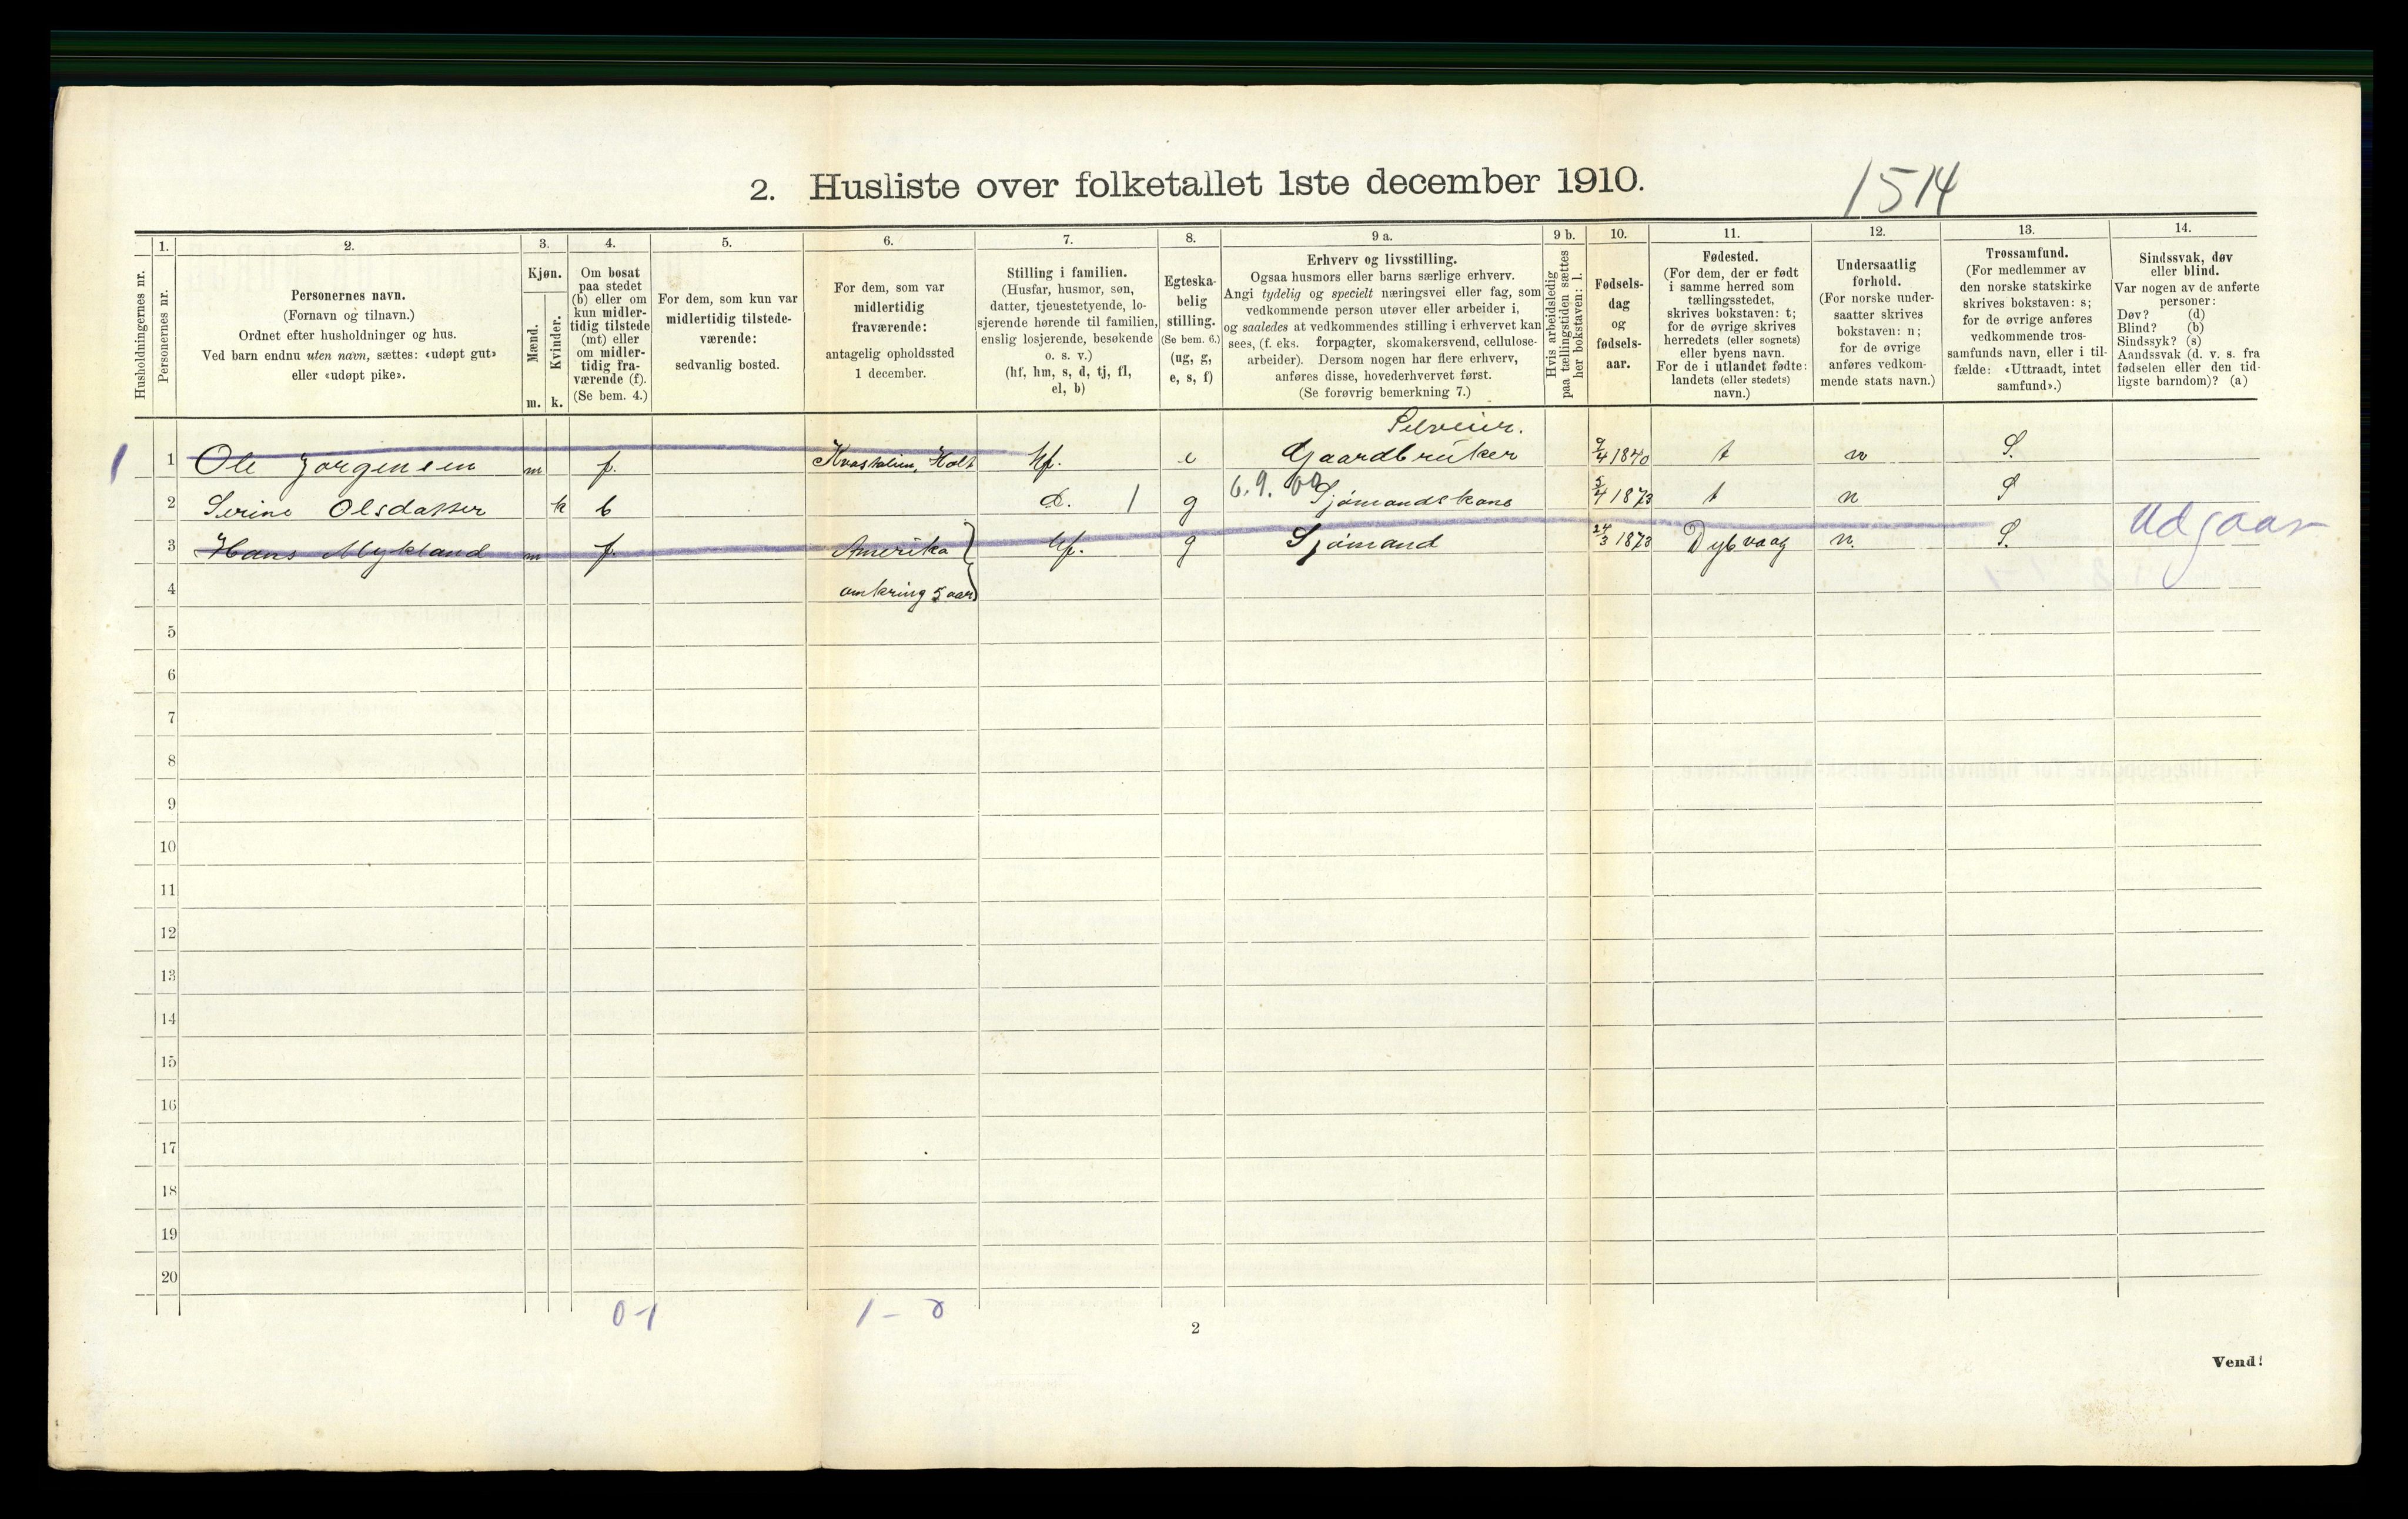 2. Husliste over folketallet 1ste december 1910.
1514
Husholdningernes nr.
1.
Personernes nr.
2.
Personernes navn.
(Fornavn og tilnavn.)
Ordnet efter husholdninger og hus.
Ved barn endnu uten navn, sættes: «udøpt gut»
eller «udøpt pike».
3.
Kjøn.
Mænd.
Kvinder.
m. k.
4.
Om bosat
paa stedet
(b) eller om
kun midler-
tidig tilstede
(mt) eller
om midler-
tidig fra-
værende (f).
(Se bem. 4.)
5.
For dem, som kun var
midlertidig tilstede-
værende:
sedvanlig bosted.
6.
For dem, som var
midlertidig
fraværende:
antagelig opholdssted
1 december.
7.
Stilling i familien.
(Husfar, husmor, søn,
datter, tjenestetyende, lo-
sjerende hørende til familien,
enslig losjerende, besøkende
o. s. v.)
(hf, hm, s, d, tj, fl,
el, b)
8.
Egteska-
belig
stilling.
(Se bem. 6.)
(ug, g,
e, s, f)
9 a.
Erhverv og livsstilling.
Ogsaa husmors eller barns særlige erhverv.
Angi tydelig og specielt næringsvei eller fag, som
vedkommende person utøver eller arbeider i,
og saaledes at vedkommendes stilling i erhvervet kan
sees, (f. eks. forpagter, skomakersvend, cellulose-
arbeider). Dersom nogen har flere erhverv,
anføres disse, hovederhvervet først.
(Se forøvrig bemerkning 7.)
9 b.
Hvis arbeidsledig
paa tællingstiden sættes
her bokstaven: l.
10.
Fødsels-
dag
og
fødsels-
aar.
11.
Fødested.
(For dem, der er født
i samme herred som
tællingsstedet,
skrives bokstaven: t;
for de øvrige skrives
herredets (eller sognets)
eller byens navn.
For de i utlandet fødte:
landets (eller stedets)
navn.)
12.
Undersaatlig
forhold.
(For norske under-
saatter skrives
bokstaven: n;
for de øvrige
anføres vedkom-
mende stats navn.)
13.
Trossamfund.
(For medlemmer av
den norske statskirke
skrives bokstaven: s;
for de øvrige anføres
vedkommende tros-
samfunds navn, eller i til-
fælde: «Uttraadt, intet
samfund».)
14.
Sindssvak, døv
eller blind.
Var nogen av de anførte
personer:
Døv? (d)
Blind? (b)
Sindssyk? (s)
Aandssvak (d. v. s. fra
fødselen eller den tid-
ligste barndom)? (a)
Selveier.
1 1 Ole Jørgensen m f. Holt hf. e Gaardbruker 9/4 1840 t n S.
6.9.
2 Serine Olsdatter k b d. 1 g Sjømandskone 5/4 1873 t n S
3 Hans Mykland m f. Amerika hf. g Sjømand 24/3 1873 Dybvaag n. S. Udgaar
4 omkring 5 aar
5
6
7
8
9
10
11
12
13
14
15
16
17
18
19
20
0-1 1-0
2
Vend!